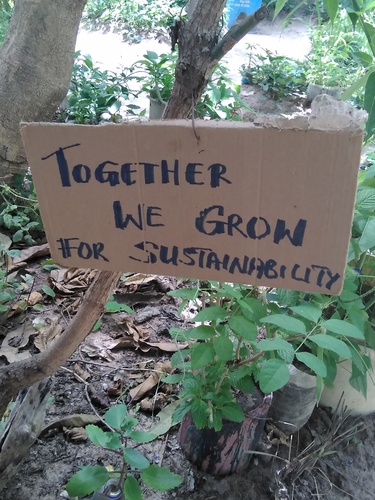 TOGETHER
WE GROW
#FOR SUSTAINABILITY